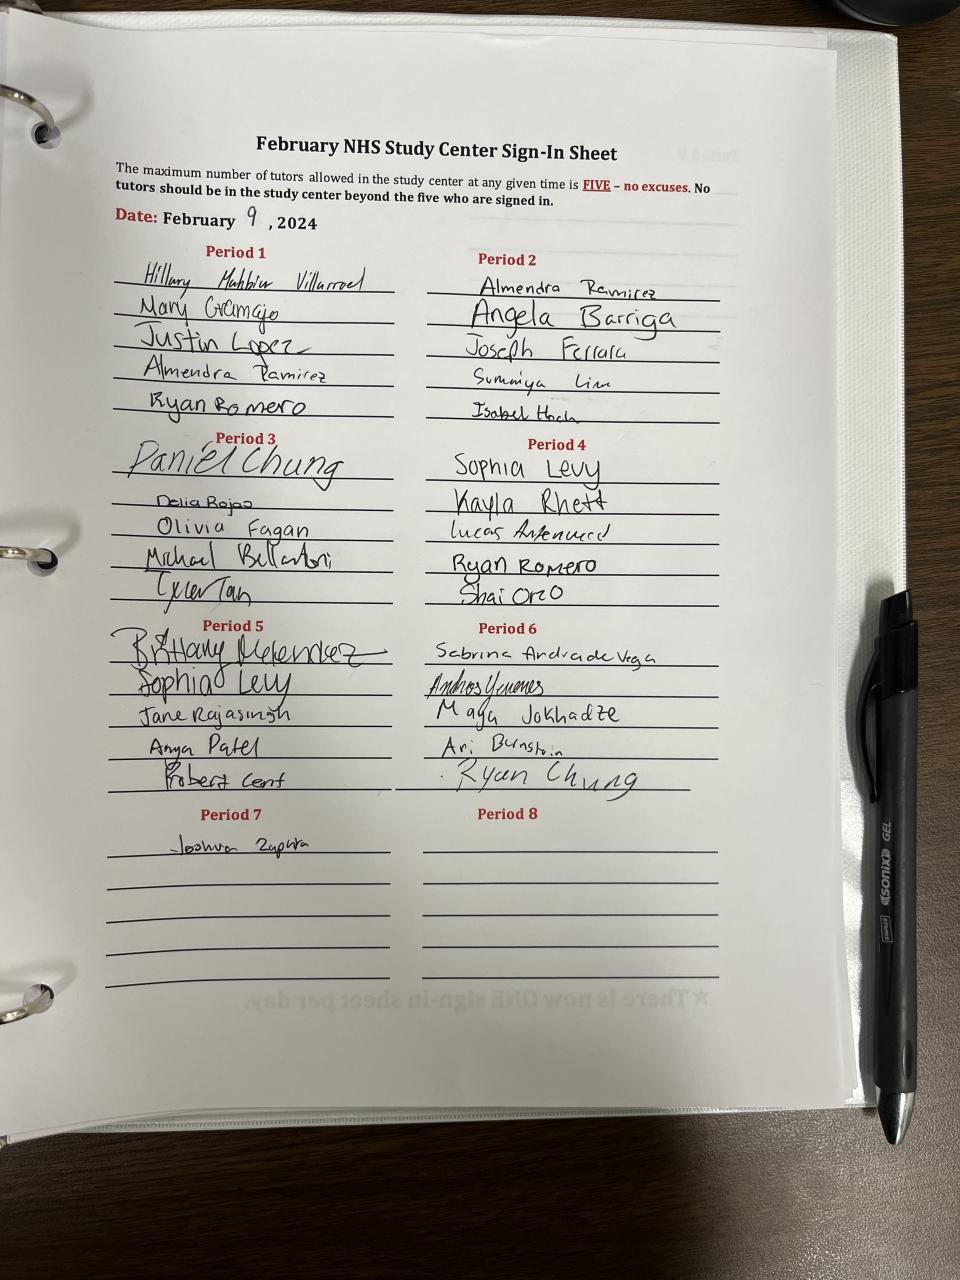 February NHS Study Center Sign-In Sheet
The maximum number of tutors allowed in the study center at any given time is FIVE – no excuses. No
tutors should be in the study center beyond the five who are signed in.
Date: February 9, 2024
Period 1
Hillary Mahbir Villarroel
Mary Gramajo
Justin Lopez
Almendra Ramirez
Ryan Romero
Period 2
Almendra Ramirez
Angela Barriga
Joseph Ferrara
Summiya Lim
Isabel Hoch
Period 3
Daniel Chung
Delia Rojas
Olivia Fagan
Michael
Tyler Tan
Period 4
Sophia Levy
Kayla Rhett
Lucas
Ryan Romero
Shai Orzo
Period 5
Brittany Melendez
Sophia Levy
Jane Rajasingh
Anya Patel
Robert Cent
Period 6
Sabrina Andrade Vega
Andros Ymenes
Maya Jokhadze
Ari Burnstein
Ryan Chung
Period 7
Joshua Zapata
Period 8
★There is now ONE sign-in sheet per day.
STAPLES
sonix GEL